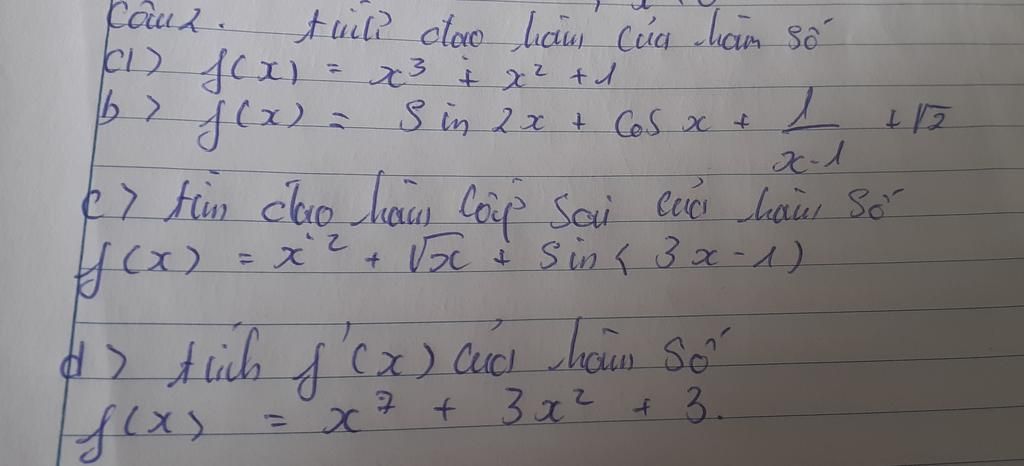 Câu 2. tính đạo hàm của hàm số
a) f(x) = x³ + x² + 1
b) f(x) = Sin 2x + Cos x + 1/(x-1) + √2
c) tìm đạo hàm Cấp Sai của hàm số
f(x) = x² + √x + Sin(3x-1)
d) tính f'(x) của hàm số
f(x) = x⁷ + 3x² + 3.